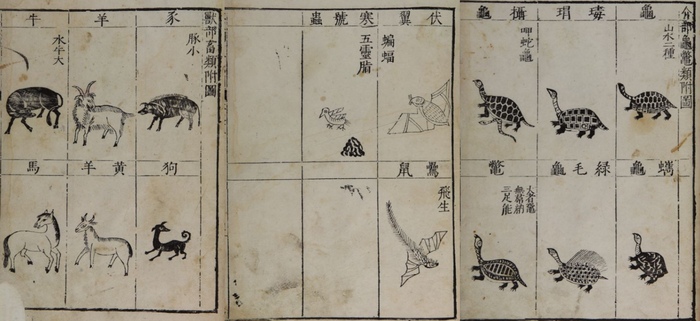 介部龜鼈類附圖
龜
山水二種
瑇瑁
攝龜
呷蛇龜
蠵龜
綠毛龜
鼈
大者黿
三足能
伏翼
蝙蝠
寒號蟲
五靈脂
鼠
飛生
獸部畜類附圖
豕
豚小
羊
牛
水牛大
狗
黃羊
馬